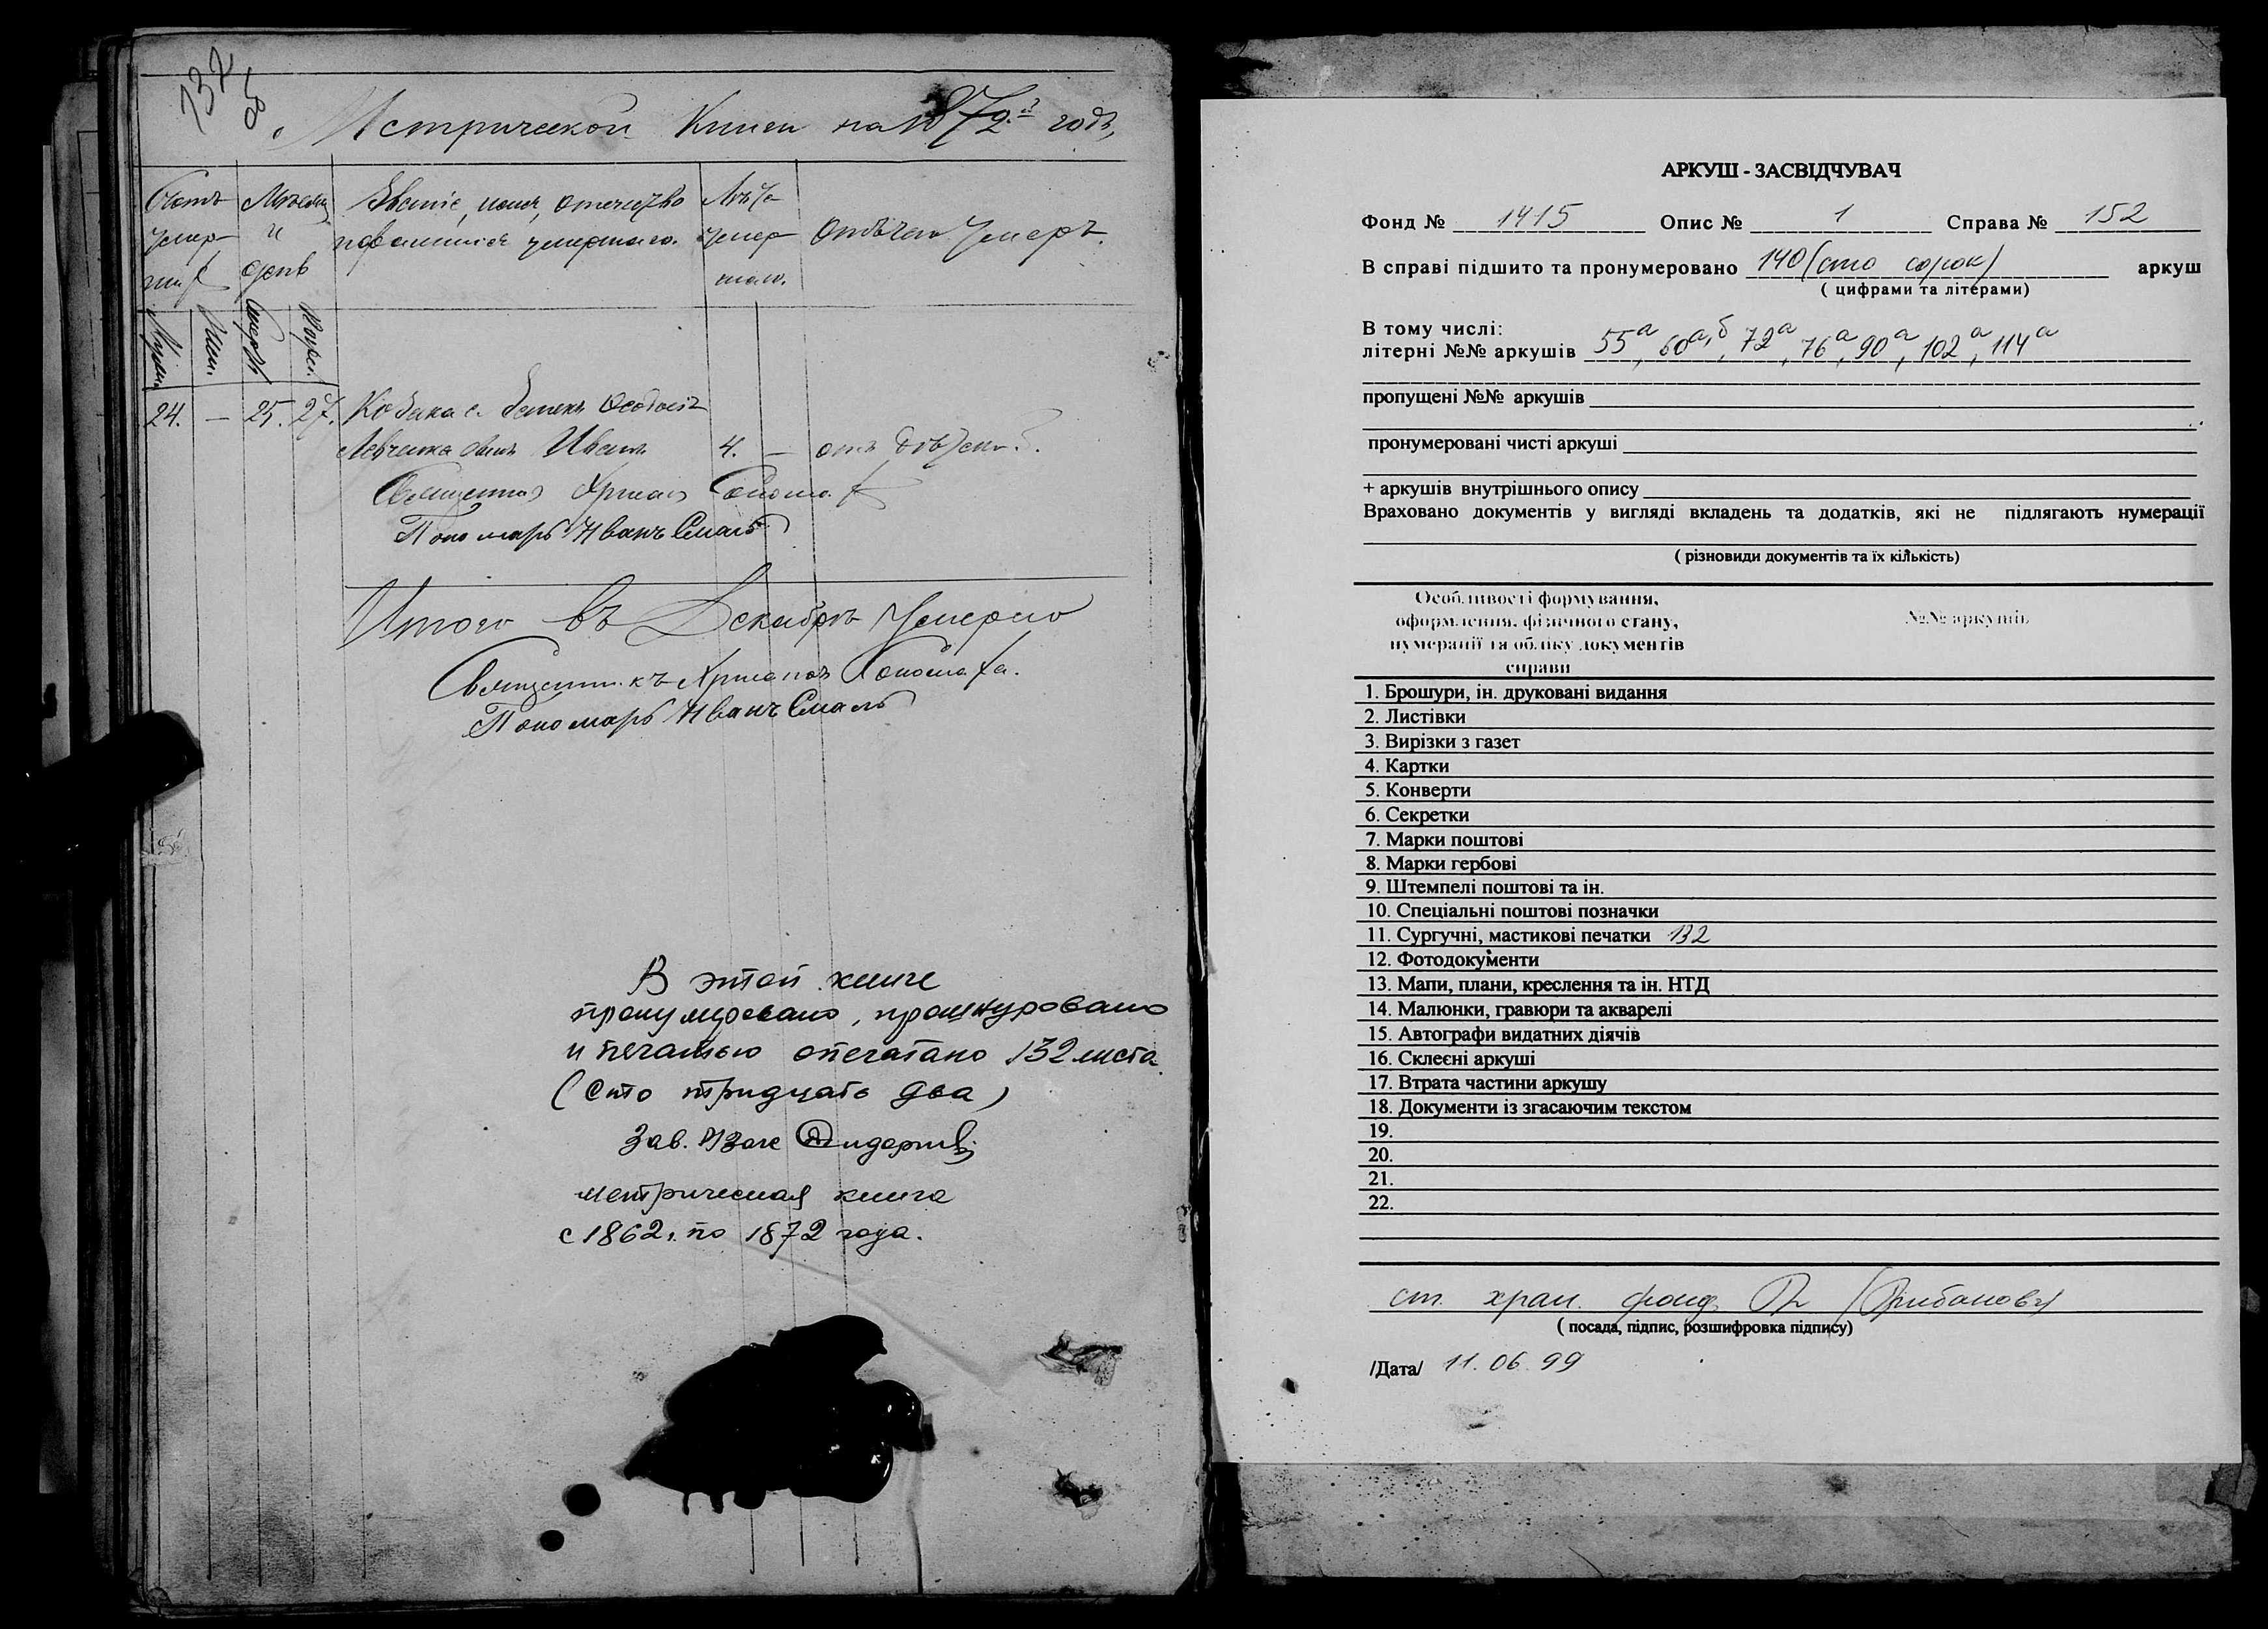 132
Метрической Книги на 1872й годъ,
Счетъ умер- Мѣсяцъ и день Званіе, имя, отчество и фамилія умершаго. Лѣта умер- шаго. Отъ чего умеръ.
Мужес. Женс. Смерти Погреб.
24. — 25. 27. Козака
Левченка сынъ Иванъ 4. — отъ
Священникъ
Пономарь Иванъ Смаль
Итого въ Декабрѣ Умерло
Священникъ
Пономарь Иванъ Смаль
В этой книге
пронумеровано, прошнуровано
и печатью опечатано 132 листа
(Сто тридцать два)
Зав.
метрическая книга
с 1862 г. по 1872 года.
АРКУШ - ЗАСВІДЧУВАЧ
Фонд № 1415 Опис № 1 Справа № 152
В справі підшито та пронумеровано 140 (сто сорок) аркуш
( цифрами та літерами)
В тому числі:
літерні №№ аркушів 55а, 60а,б, 72а, 76а, 90а, 102а, 114а
пропущені №№ аркушів
пронумеровані чисті аркуші
+ аркушів внутрішнього опису
Враховано документів у вигляді вкладень та додатків, які не підлягають нумерації
( різновиди документів та їх кількість)
Особливості формування,
оформлення, фізичного стану, №№ аркушів
нумерації та обліку документів
справи
1. Брошури, ін. друковані видання
2. Листівки
3. Вирізки з газет
4. Картки
5. Конверти
6. Секретки
7. Марки поштові
8. Марки гербові
9. Штемпелі поштові та ін.
10. Спеціальні поштові позначки
11. Сургучні, мастикові печатки 132
12. Фотодокументи
13. Мапи, плани, креслення та ін. НТД
14. Малюнки, гравюри та акварелі
15. Автографи видатних діячів
16. Склеєні аркуші
17. Втрата частини аркушу
18. Документи із згасаючим текстом
19.
20.
21.
22.
ст. хран. фонд.
( посада, підпис, розшифровка підпису)
/Дата/ 11.06.99